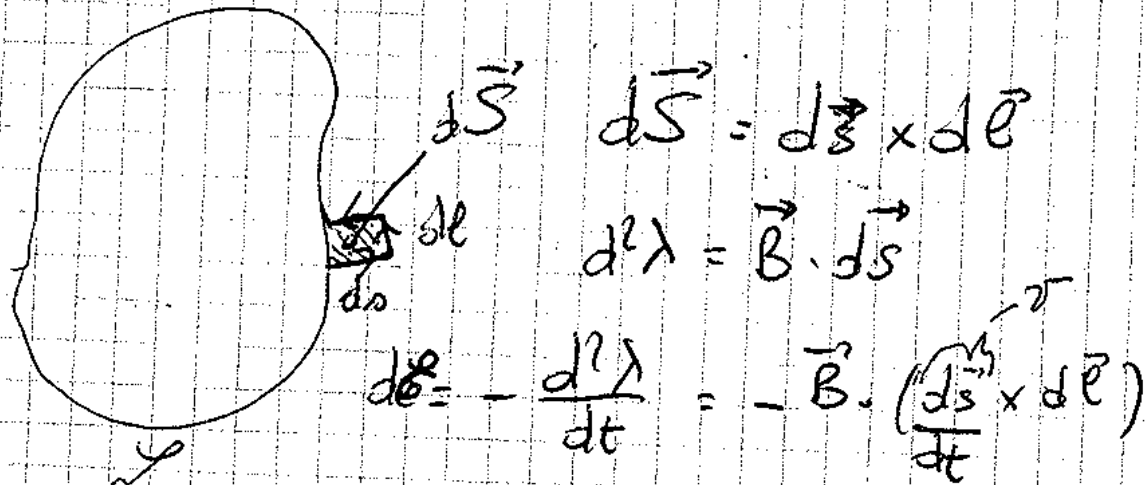 d𝑆⃗  d𝑆⃗ = d𝑠⃗ × d𝓁⃗
dℓ
ds
d²λ = B⃗ · dS⃗
dℰ = - d²λ/dt = - B⃗ · (ds⃗/dt × dℓ⃗)
v